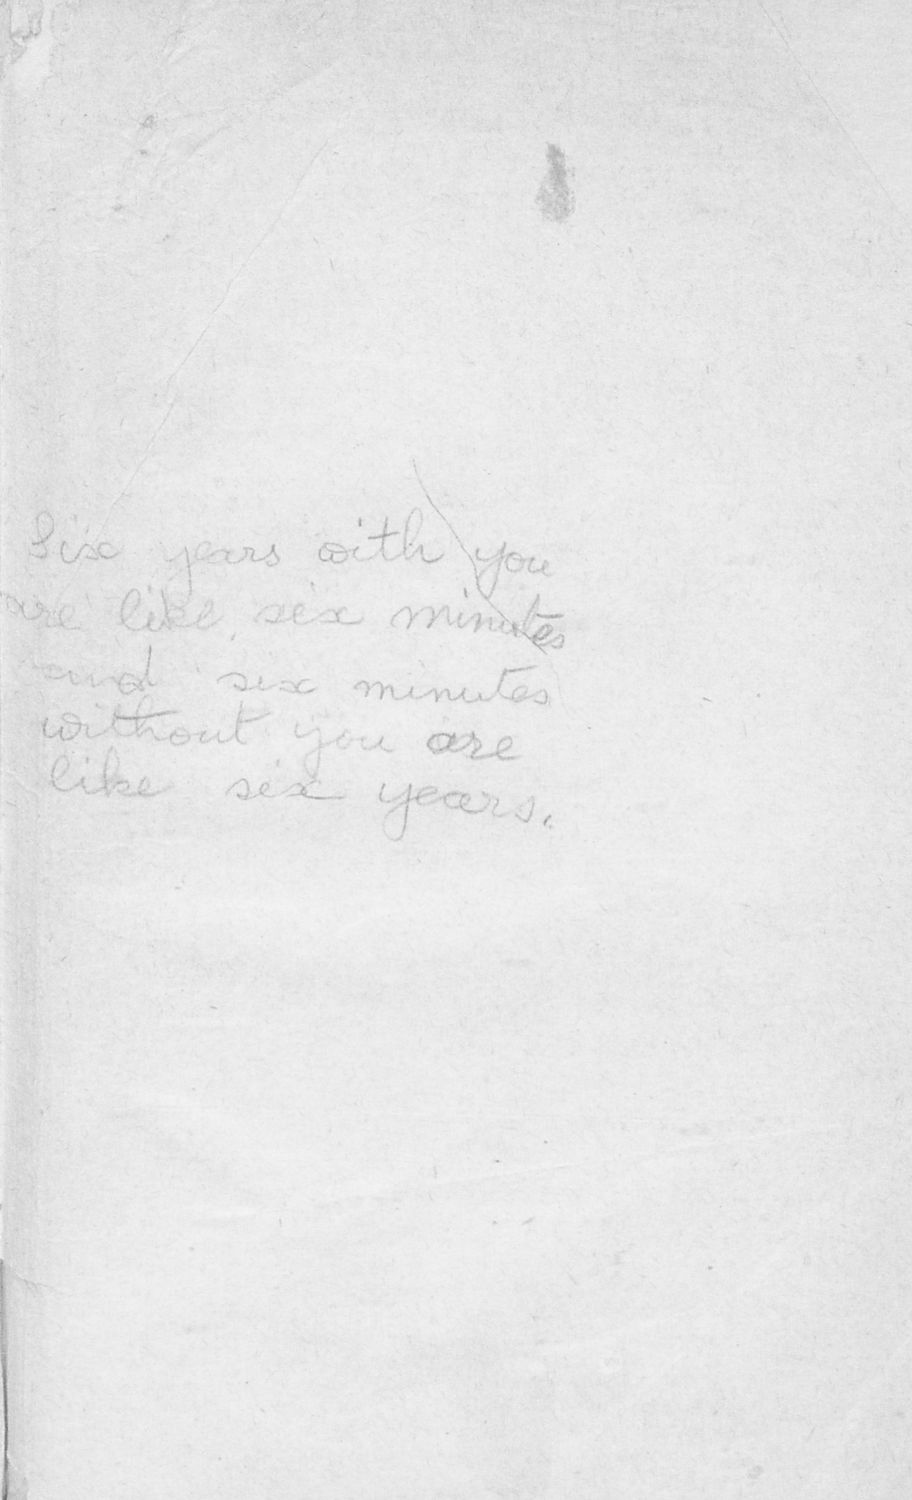 Six years with you
are like six minutes
and six minutes
without you are
like six years.